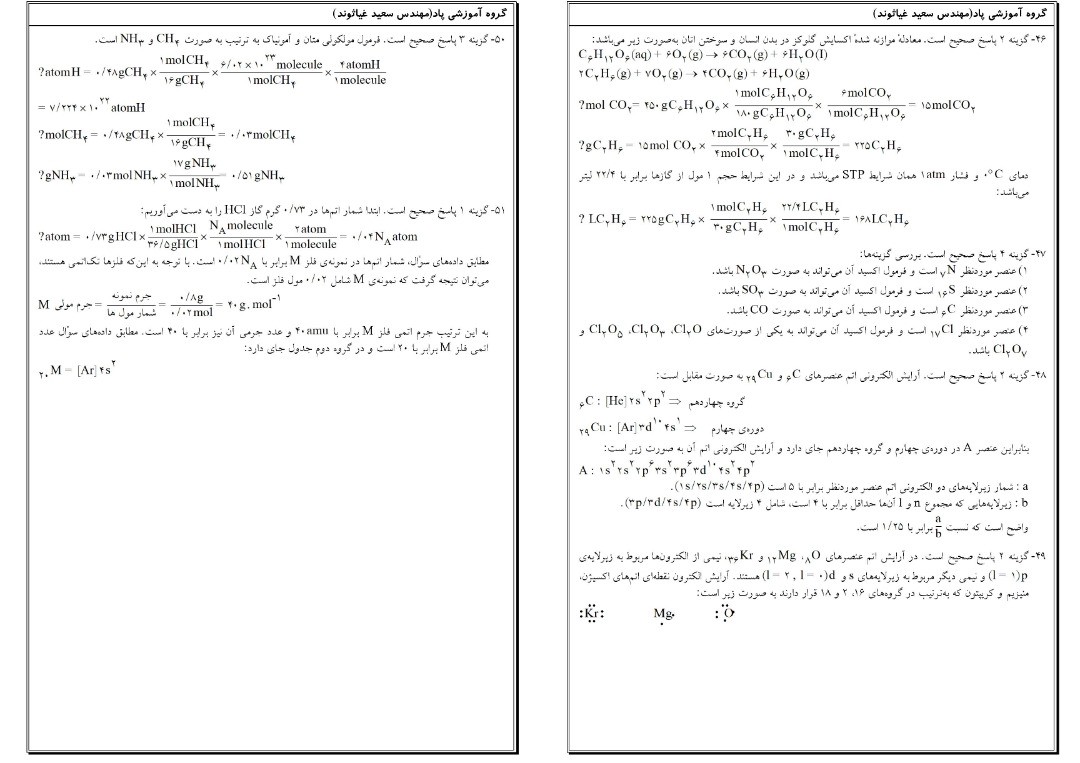 گروه آموزشی پاد(مهندس سعید غیاثوند)
۴۶- گزینه ۲ پاسخ صحیح است. معادلهٔ موازنه شدهٔ اکسایش گلوکز در بدن انسان و سوختن اتان به‌صورت زیر می‌باشد:
C۶H۱۲O۶(aq) + ۶O۲(g) → ۶CO۲(g) + ۶H۲O(l)
۲C۲H۶(g) + ۷O۲(g) → ۴CO۲(g) + ۶H۲O(g)
?mol CO۲= ۴۵۰gC۶H۱۲O۶ × ۱molC۶H۱۲O۶/۱۸۰gC۶H۱۲O۶ × ۶molCO۲/۱molC۶H۱۲O۶ = ۱۵molCO۲
?gC۲H۶ = ۱۵mol CO۲ × ۲molC۲H۶/۴molCO۲ × ۳۰gC۲H۶/۱molC۲H۶ = ۲۲۵C۲H۶
دمای ۰°C و فشار ۱atm همان شرایط STP می‌باشد و در این شرایط حجم ۱ مول از گازها برابر با ۲۲/۴ لیتر
می‌باشد:
? LC۲H۶ = ۲۲۵gC۲H۶ × ۱molC۲H۶/۳۰gC۲H۶ × ۲۲/۴LC۲H۶/۱molC۲H۶ = ۱۶۸LC۲H۶
۴۷- گزینه ۴ پاسخ صحیح است. بررسی گزینه‌ها:
۱) عنصر موردنظر ۷N است و فرمول اکسید آن می‌تواند به صورت N۲O۳ باشد.
۲) عنصر موردنظر ۱۶S است و فرمول اکسید آن می‌تواند به صورت SO۳ باشد.
۳) عنصر موردنظر ۶C است و فرمول اکسید آن می‌تواند به صورت CO باشد.
۴) عنصر موردنظر ۱۷Cl است و فرمول اکسید آن می‌تواند به یکی از صورت‌های Cl۲O، Cl۲O۳، Cl۲O۵ و
Cl۲O۷ باشد.
۴۸- گزینه ۲ پاسخ صحیح است. آرایش الکترونی اتم عنصرهای ۶C و ۲۹Cu به صورت مقابل است:
۶C : [He]۲s۲۲p۲ ⇒ گروه چهاردهم
۲۹Cu : [Ar]۳d۱۰۴s۱ ⇒ دوره‌ی چهارم
بنابراین عنصر A در دوره‌ی چهارم و گروه چهاردهم جای دارد و آرایش الکترونی اتم آن به صورت زیر است:
A : ۱s۲۲s۲۲p۶۳s۲۳p۶۳d۱۰۴s۲۴p۲
a : شمار زیرلایه‌های دو الکترونی اتم عنصر موردنظر برابر با ۵ است (۱s/۲s/۳s/۴s/۴p).
b : زیرلایه‌هایی که مجموع n و l آن‌ها حداقل برابر با ۴ است، شامل ۴ زیرلایه است (۳p/۳d/۴s/۴p).
واضح است که نسبت a/b برابر با ۱/۲۵ است.
۴۹- گزینه ۲ پاسخ صحیح است. در آرایش اتم عنصرهای ۸O، ۱۲Mg و ۳۶Kr، نیمی از الکترون‌ها مربوط به زیرلایه‌ی
p(l = ۱) و نیمی دیگر مربوط به زیرلایه‌های s و d(l = ۲ , l = ۰) هستند. آرایش الکترون نقطه‌ای اتم‌های اکسیژن،
منیزیم و کریپتون که به‌ترتیب در گروه‌های ۱۶، ۲ و ۱۸ قرار دارند به صورت زیر است:
:Kr: Mg· :O·
گروه آموزشی پاد(مهندس سعید غیاثوند)
۵۰- گزینه ۳ پاسخ صحیح است. فرمول مولکولی متان و آمونیاک به ترتیب به صورت CH۴ و NH۳ است.
?atomH = ۰/۴۸gCH۴ × ۱molCH۴/۱۶gCH۴ × ۶/۰۲×۱۰۲۳ molecule/۱molCH۴ × ۴atomH/۱molecule
= ۷/۲۲۴×۱۰۲۲ atomH
?molCH۴ = ۰/۴۸gCH۴ × ۱molCH۴/۱۶gCH۴ = ۰/۰۳molCH۴
?gNH۳ = ۰/۰۳molNH۳ × ۱۷gNH۳/۱molNH۳ = ۰/۵۱gNH۳
۵۱- گزینه ۱ پاسخ صحیح است. ابتدا شمار اتم‌ها در ۰/۷۳ گرم گاز HCl را به دست می‌آوریم:
?atom = ۰/۷۳gHCl × ۱molHCl/۳۶/۵gHCl × NAmolecule/۱molHCl × ۲atom/۱molecule = ۰/۰۴NA atom
مطابق داده‌های سؤال، شمار اتم‌ها در نمونه‌ی فلز M برابر با ۰/۰۲NA است. با توجه به این‌که فلزها تک‌اتمی هستند،
می‌توان نتیجه گرفت که نمونه‌ی M شامل ۰/۰۲ مول فلز است.
M جرم مولی = جرم نمونه/شمار مول ها = ۰/۸g/۰/۰۲mol = ۴۰g.mol−۱
به این ترتیب جرم اتمی فلز M برابر با ۴۰amu و عدد جرمی آن نیز برابر با ۴۰ است. مطابق داده‌های سؤال عدد
اتمی فلز M برابر با ۲۰ است و در گروه دوم جدول جای دارد:
۲۰M = [Ar]۴s۲